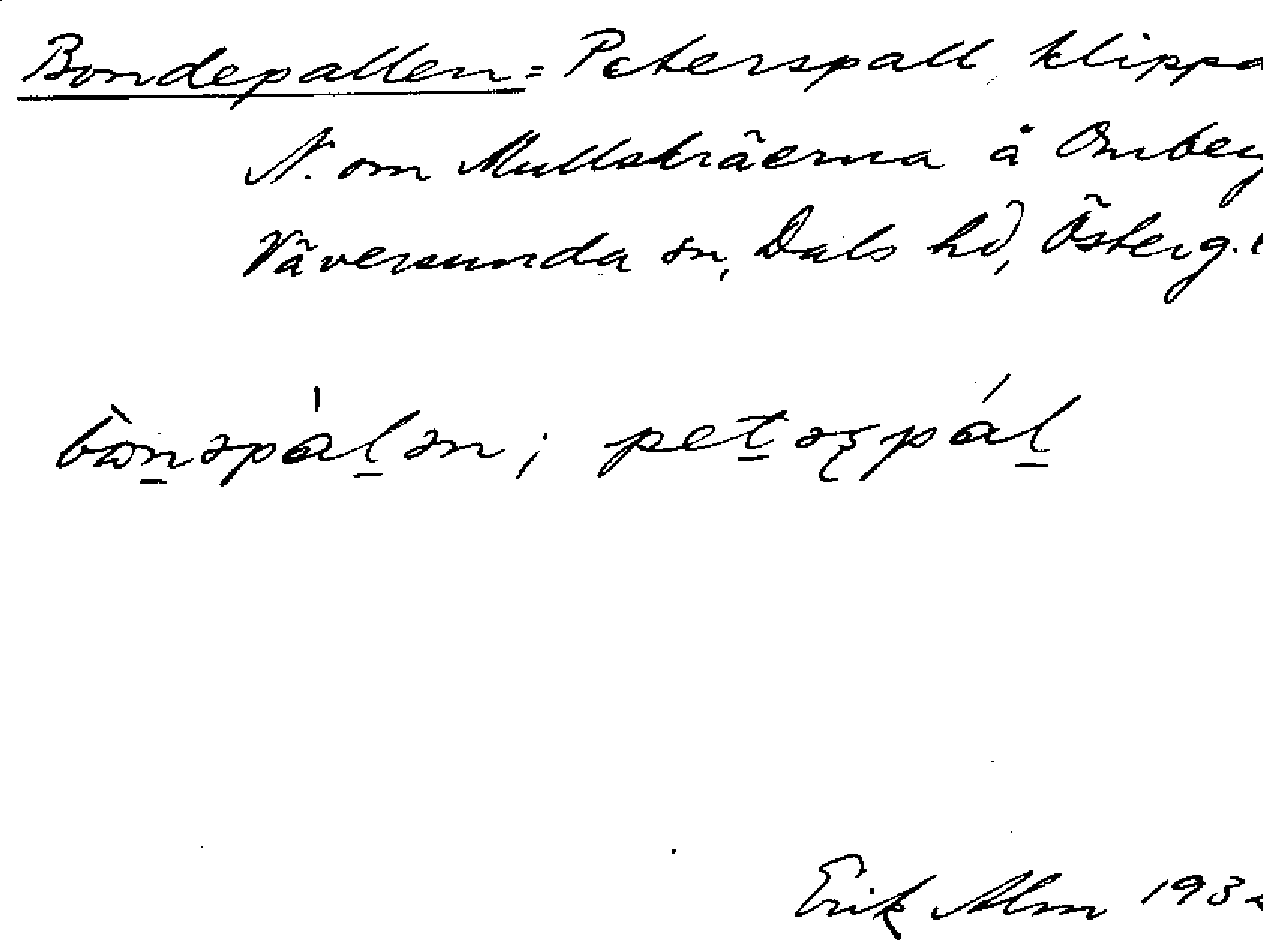 Bondepallen = Peterspall, klippa
N. om Mullskräerna å Omberg
Väversunda sn, Dals hd, Österg.
bòn̲əpál̲ən; pet̲əʂpál̲
Erik Alm 193